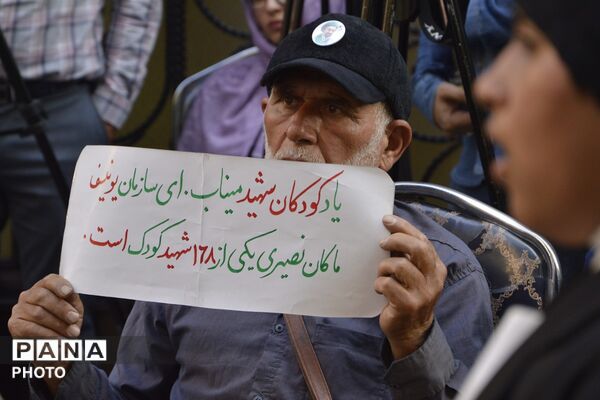 یاد کودکان شهید میناب. ای سازمان یونیسفا
ماکان نصیری یکی از ۱۶۸ شهید کودک است.
PANA
PHOTO